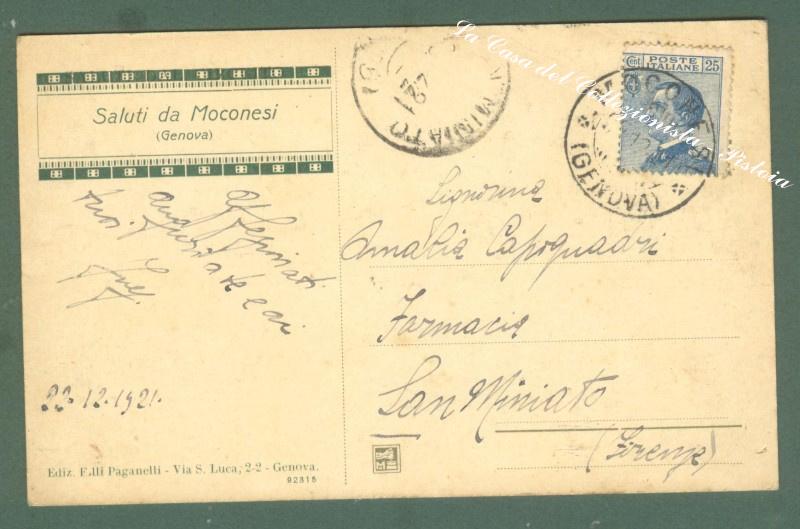 Saluti da Moconesi
(Genova)
affezionati
auguri a te e ai
tuoi.
22.12.1921.
Ediz. F.lli Paganelli - Via S. Luca, 2-2 - Genova.
92315
MINIATO
21
Cent
POSTE
ITALIANE
25
MOCONESI
(GENOVA)
Signorina
Amalia Capoquadri
Farmacia
San Miniato
(Firenze)
La Casa del Collezionista - Pistoia